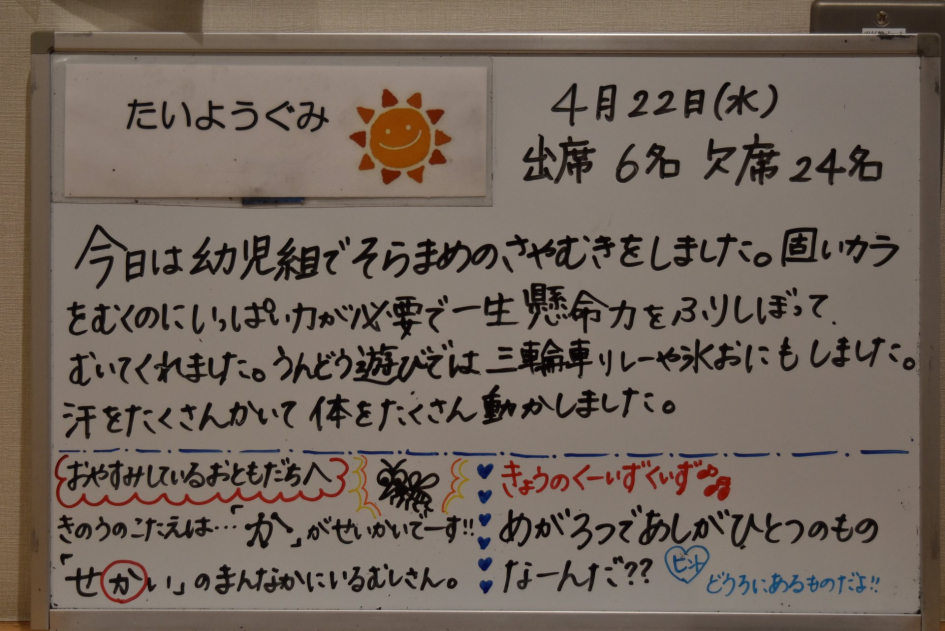 たいようぐみ
4月22日(水)
出席 6名 欠席 24名
今日は幼児組でそらまめのさやむきをしました。固いカラ
をむくのにいっぱい力が必要で一生懸命力をふりしぼって
むいてくれました。うんどう遊びでは三輪車リレーや氷おにもしました。
汗をたくさんかいて体をたくさん動かしました。
おやすみしているおともだちへ
きのうのこたえは…「か」がせいかいでーす!!
「せかい」のまんなかにいるむしさん。
きょうのくーいずくいず♪♫
めがろっつであしがひとつのもの
なーんだ??
ヒント
どうろにあるものだよ!!